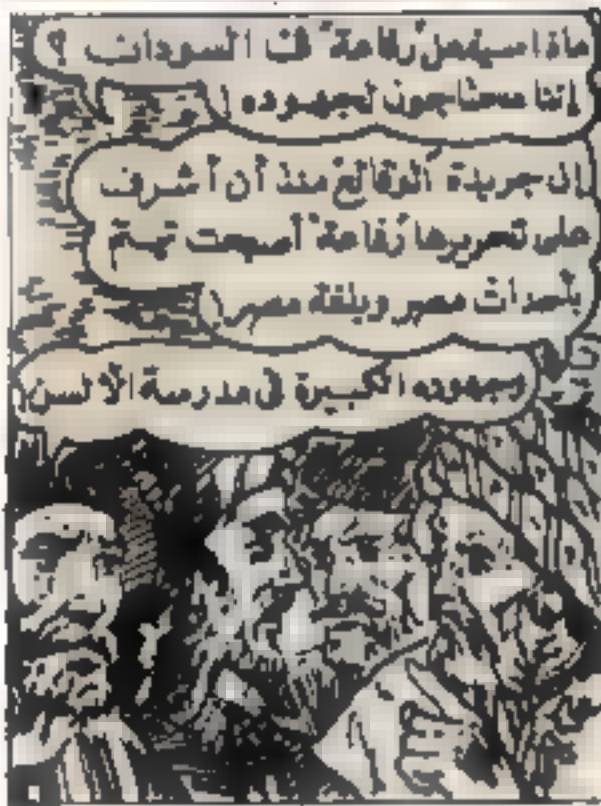 ماذا سيفعل "رفاعة" في السودان ؟
إننا محتاجون لجهوده !
إن جريدة "الوقائع" منذ أن أشرف
على تحريرها "رفاعة" أصبحت تهتم
بأحداث مصر وبلغة مصر !
وجهوده الكبيرة في مدرسة الألسن